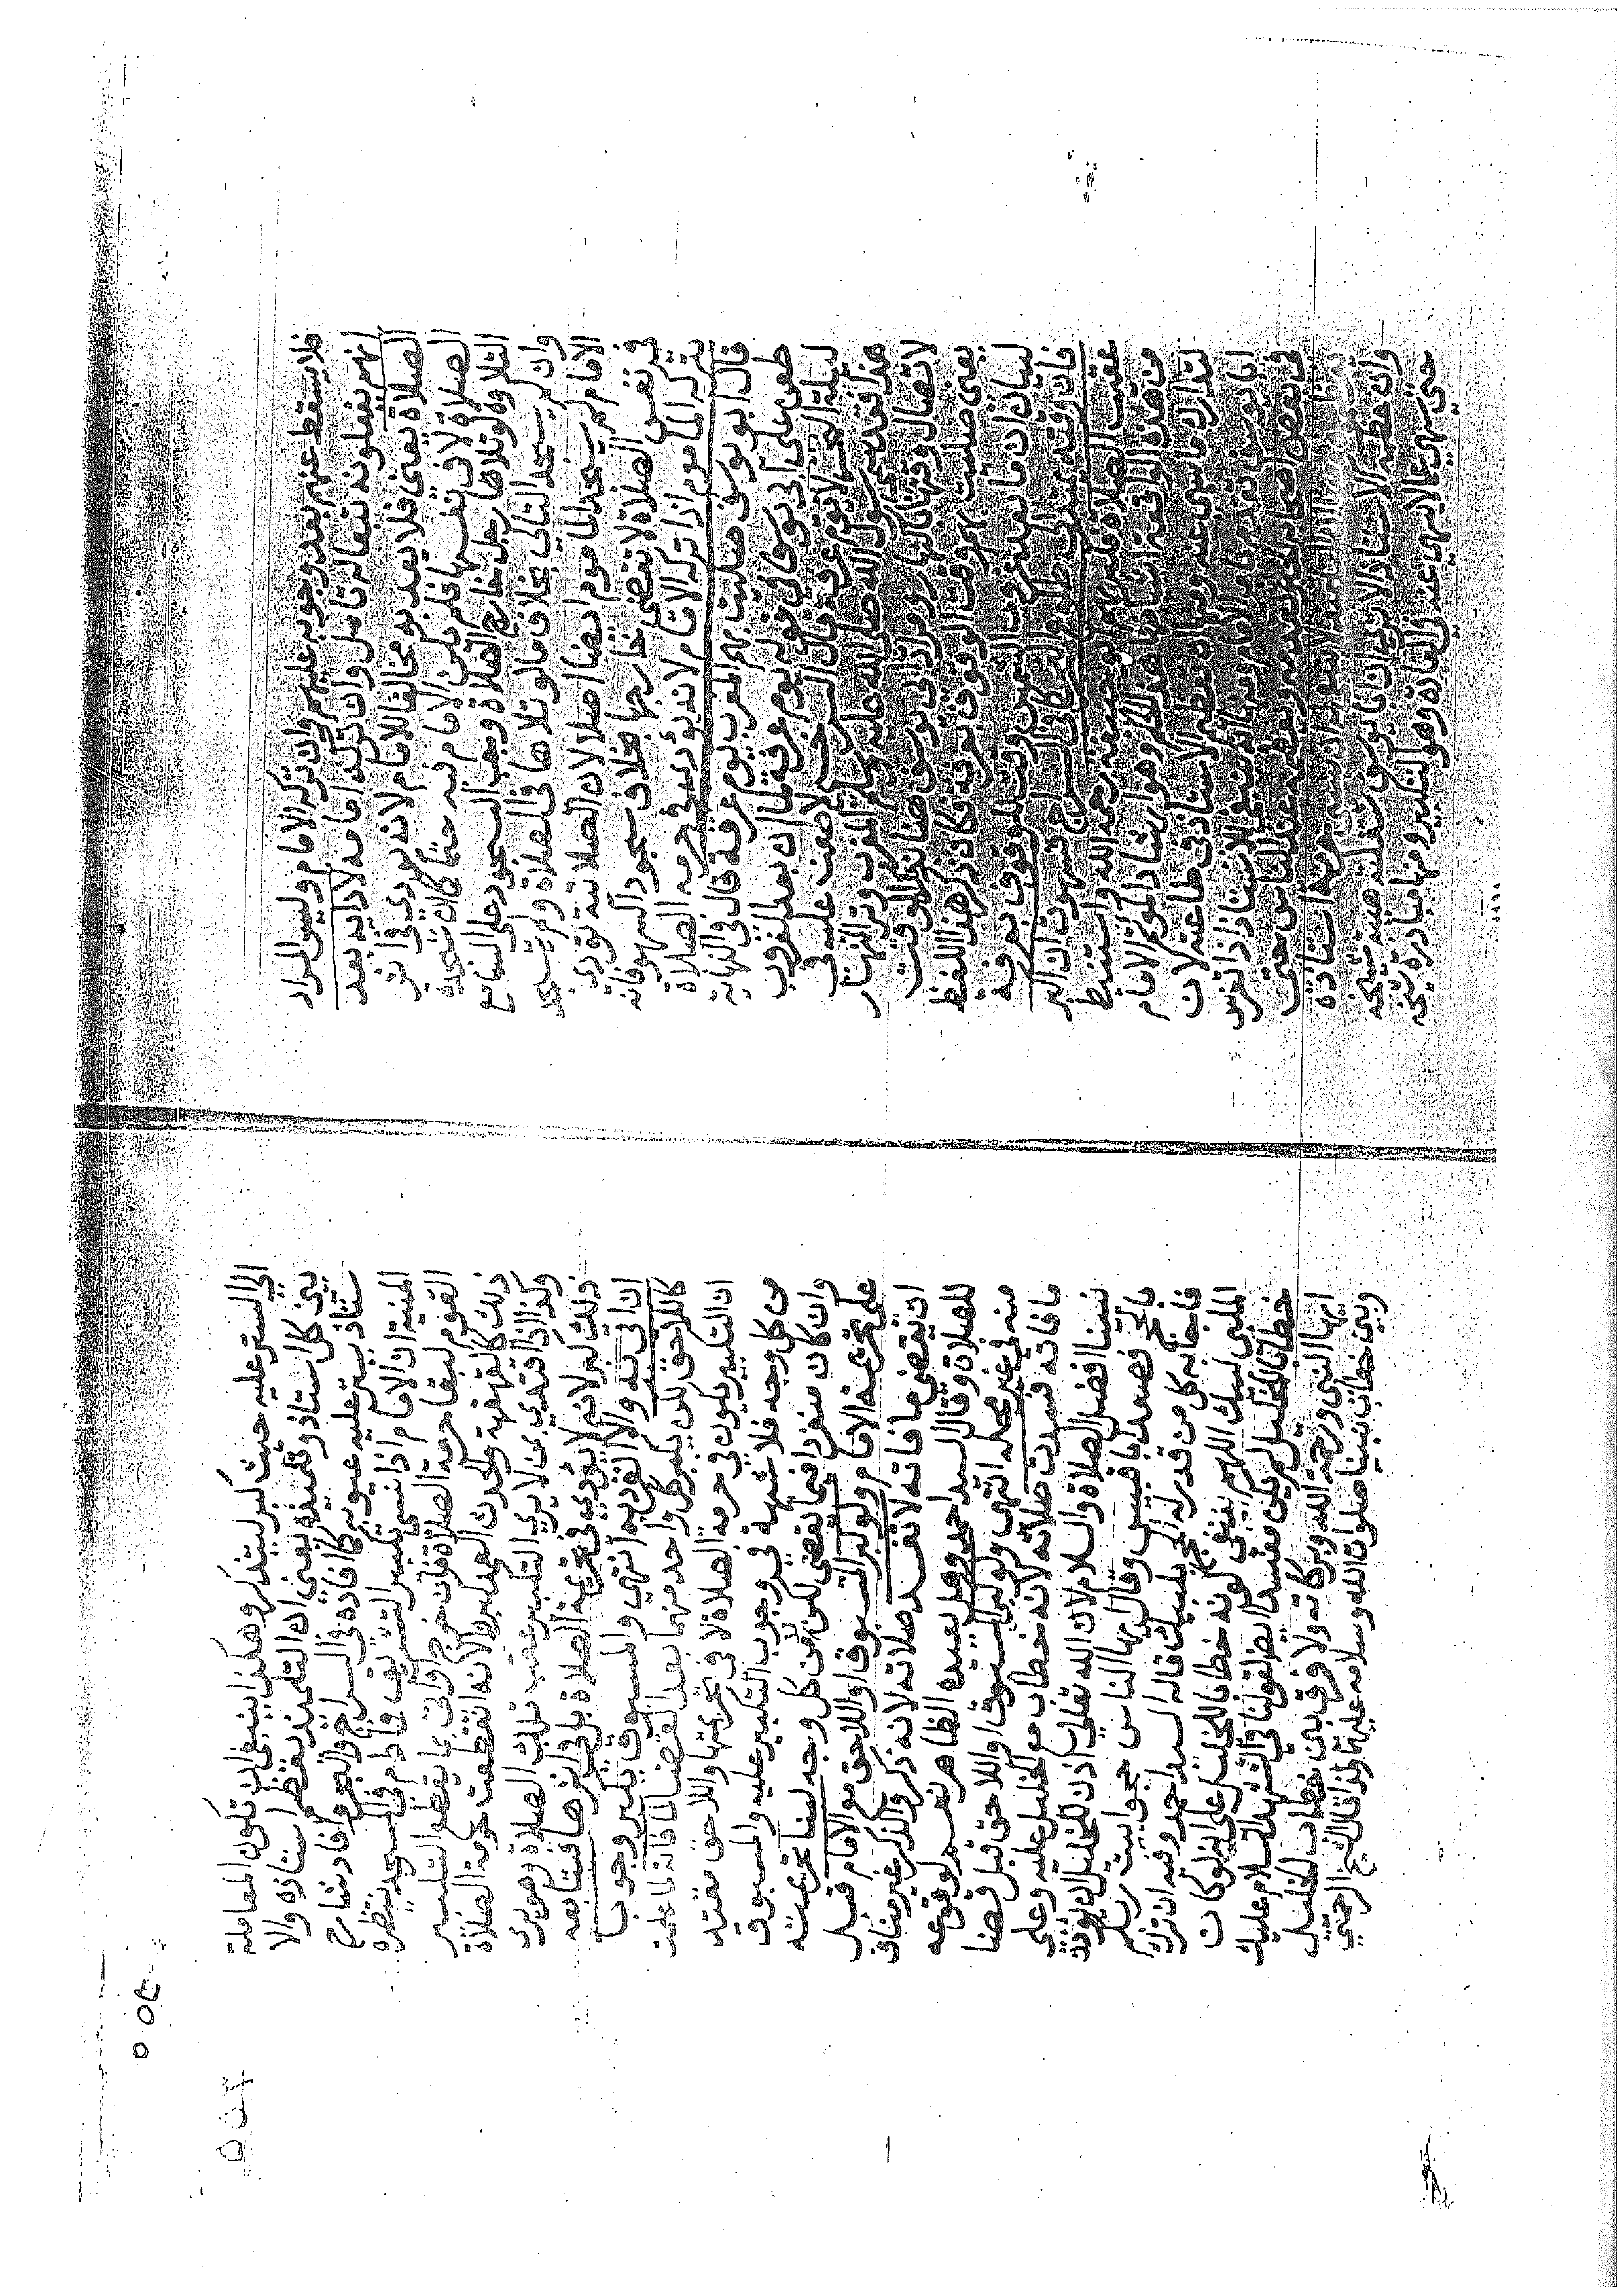 فلا يسقط عنهم بعد وجوبه عليهم وان تركه الامام وليس المراد
انهم يفعلونه تبعا له تامل وان تركه امامه لادايه بعد
الصلاة يعني فلا يعد به مخالفا للامام لانه يودي في اثر
الصلاة لا في نفسها فلم يكن الامام فيه حتما كان كسجدة
التلاوة لو تلاها رجل خارج الصلاة وجب السجود على السامع
وان لم يسجد التالي بخلاف ما لو تلاها في الصلاة ولم يسجد
الامام لم يسجد الماموم ايضا اصلا لان الصلاتية تودي
في نفس الصلاة لا تقضى خارجها بخلاف سجود السهو فانه
يتركه الماموم اذا تركه الامام لانه يؤدى في حرمة الصلاة
قال ابو يوسف صليت بهم المغرب يوم عرفة قال في النهاية
طعن على ابي يوسف في قوله يوم عرفة لما ان بعد الغروب
ليلة النحر لا يوم عرفة قال السرخسي لا طعن عليه في
هذا فقد سمى رسول الله صلى الله عليه وسلم المغرب وتر النهار
لاتصال وقتها بالنهار ومراد ابي يوسف هنا ذكر الوقت
يعني صليت بهم وقت الوقوف بعرفة فكان ذكر هذا اللفظ
لبيان ان ما بعد غروب الشمس وقت للوقوف بعرفة
فان وقته يمتد الى طلوع الفجر كما في السراج فسهوت ان اكبر
عقيب الصلاة فكبر بهم ابو حنيفة رحمه الله واستنبط
من هذه الواقعة اشيا منها هذا الحكم وهو ارشاد المؤتم الامام
لتدارك ما سهى عنه ومنها ان تعظيم الاستاذ في طاعته لان
ابا يوسف تقدم بامر الامام ومنها انه ينبغي للاستاذ اذا تفرس
في بعض اصحابه الخير ان يقدمه ويعظمه عند الناس حتى
ان ينسى حرمة استاذه
وان عظمه الاستاذ الا ترى ان ابا يوسف شغلته هيبة شيخه
حتى سهى عما لا يسهى عنه في العادة وهو التكبير ومنها مبادرة شيخه
الى الستر عليه حيث كبر ليتذكر وهكذا ينبغي ان تكون المعاملة
بين كل استاذ وتلميذه يعني ان التلميذ يعظم استاذه والا
ستاذ يستر عليه عيوبه كما افاده في السراج والبحر وافاد شارح
المنية ان الامام اذا نسي تكبير التشريق فما دام في المسجد ينتظره
القوم لبقا حرمة الصلاة فان خرج او اتى بما يقطع التكبير
ذلك كالقهقهة والحدث العمد كبروا لانه انقطعت حرمة الصلاة
وكذا اذا اقتدي بمن لا يري التكبير عقيب تلك الصلاة وهو يري
ذلك كبر لانه لا يؤدي في تحريمة الصلاة بل في اثرها فيتابعه
ان اتى به والا انفرد به انتهي والمسبوق يكبر وجوبا
كاللاحق لكن يكبر كل واحد منهما بعد القضا لما فاته لما علمت
ان التكبير يكون في حرمة الصلاة لا في تحريمتها واللاحق مقتد
من كل وجه فلا شبهة في وجوب التكبير عليه والمسبوق
وان كان منفردا فيما يقضي لكن من كل وجه لبنا تحريمته
على تحريمة الامام ولو كبر المسبوق او اللاحق مع الامام قبل
ان يقضي ما فاته لا تفسد صلاته لانه ذكر والذكر غير مناف
للصلاة وقال السيد احمد وهل يعيده الظاهر نعم لوقوعه
منه في غير محله انتهى ولو لبى المسبوق او اللاحق قبل قضا
ما فاته فسدت صلاته لانه خطاب مع الخليل عليه وعلى
نبينا افضل الصلاة والسلام لان الله تعالى اذن للخليل ان يؤذن
بالحج فصعد ابا قبيس وقال ايها الناس حجوا بيت ربكم
فاجابه كل من قدر له الحج بلبيك قاله السيد احمد وفيه ان قول
الملبي لبيك اللهم ينفي كونه خطابا للخليل على انه لو كان
خطابا للخليل لم يكن مفسدا ايضا لقولنا في التشهد السلام عليك
ايها النبي ورحمة الله وبركاته ولا فرق بين خطاب الخليل
وبين خطاب نبينا صلوات الله وسلامه عليهما ولذا قال الشيخ الرحمتي